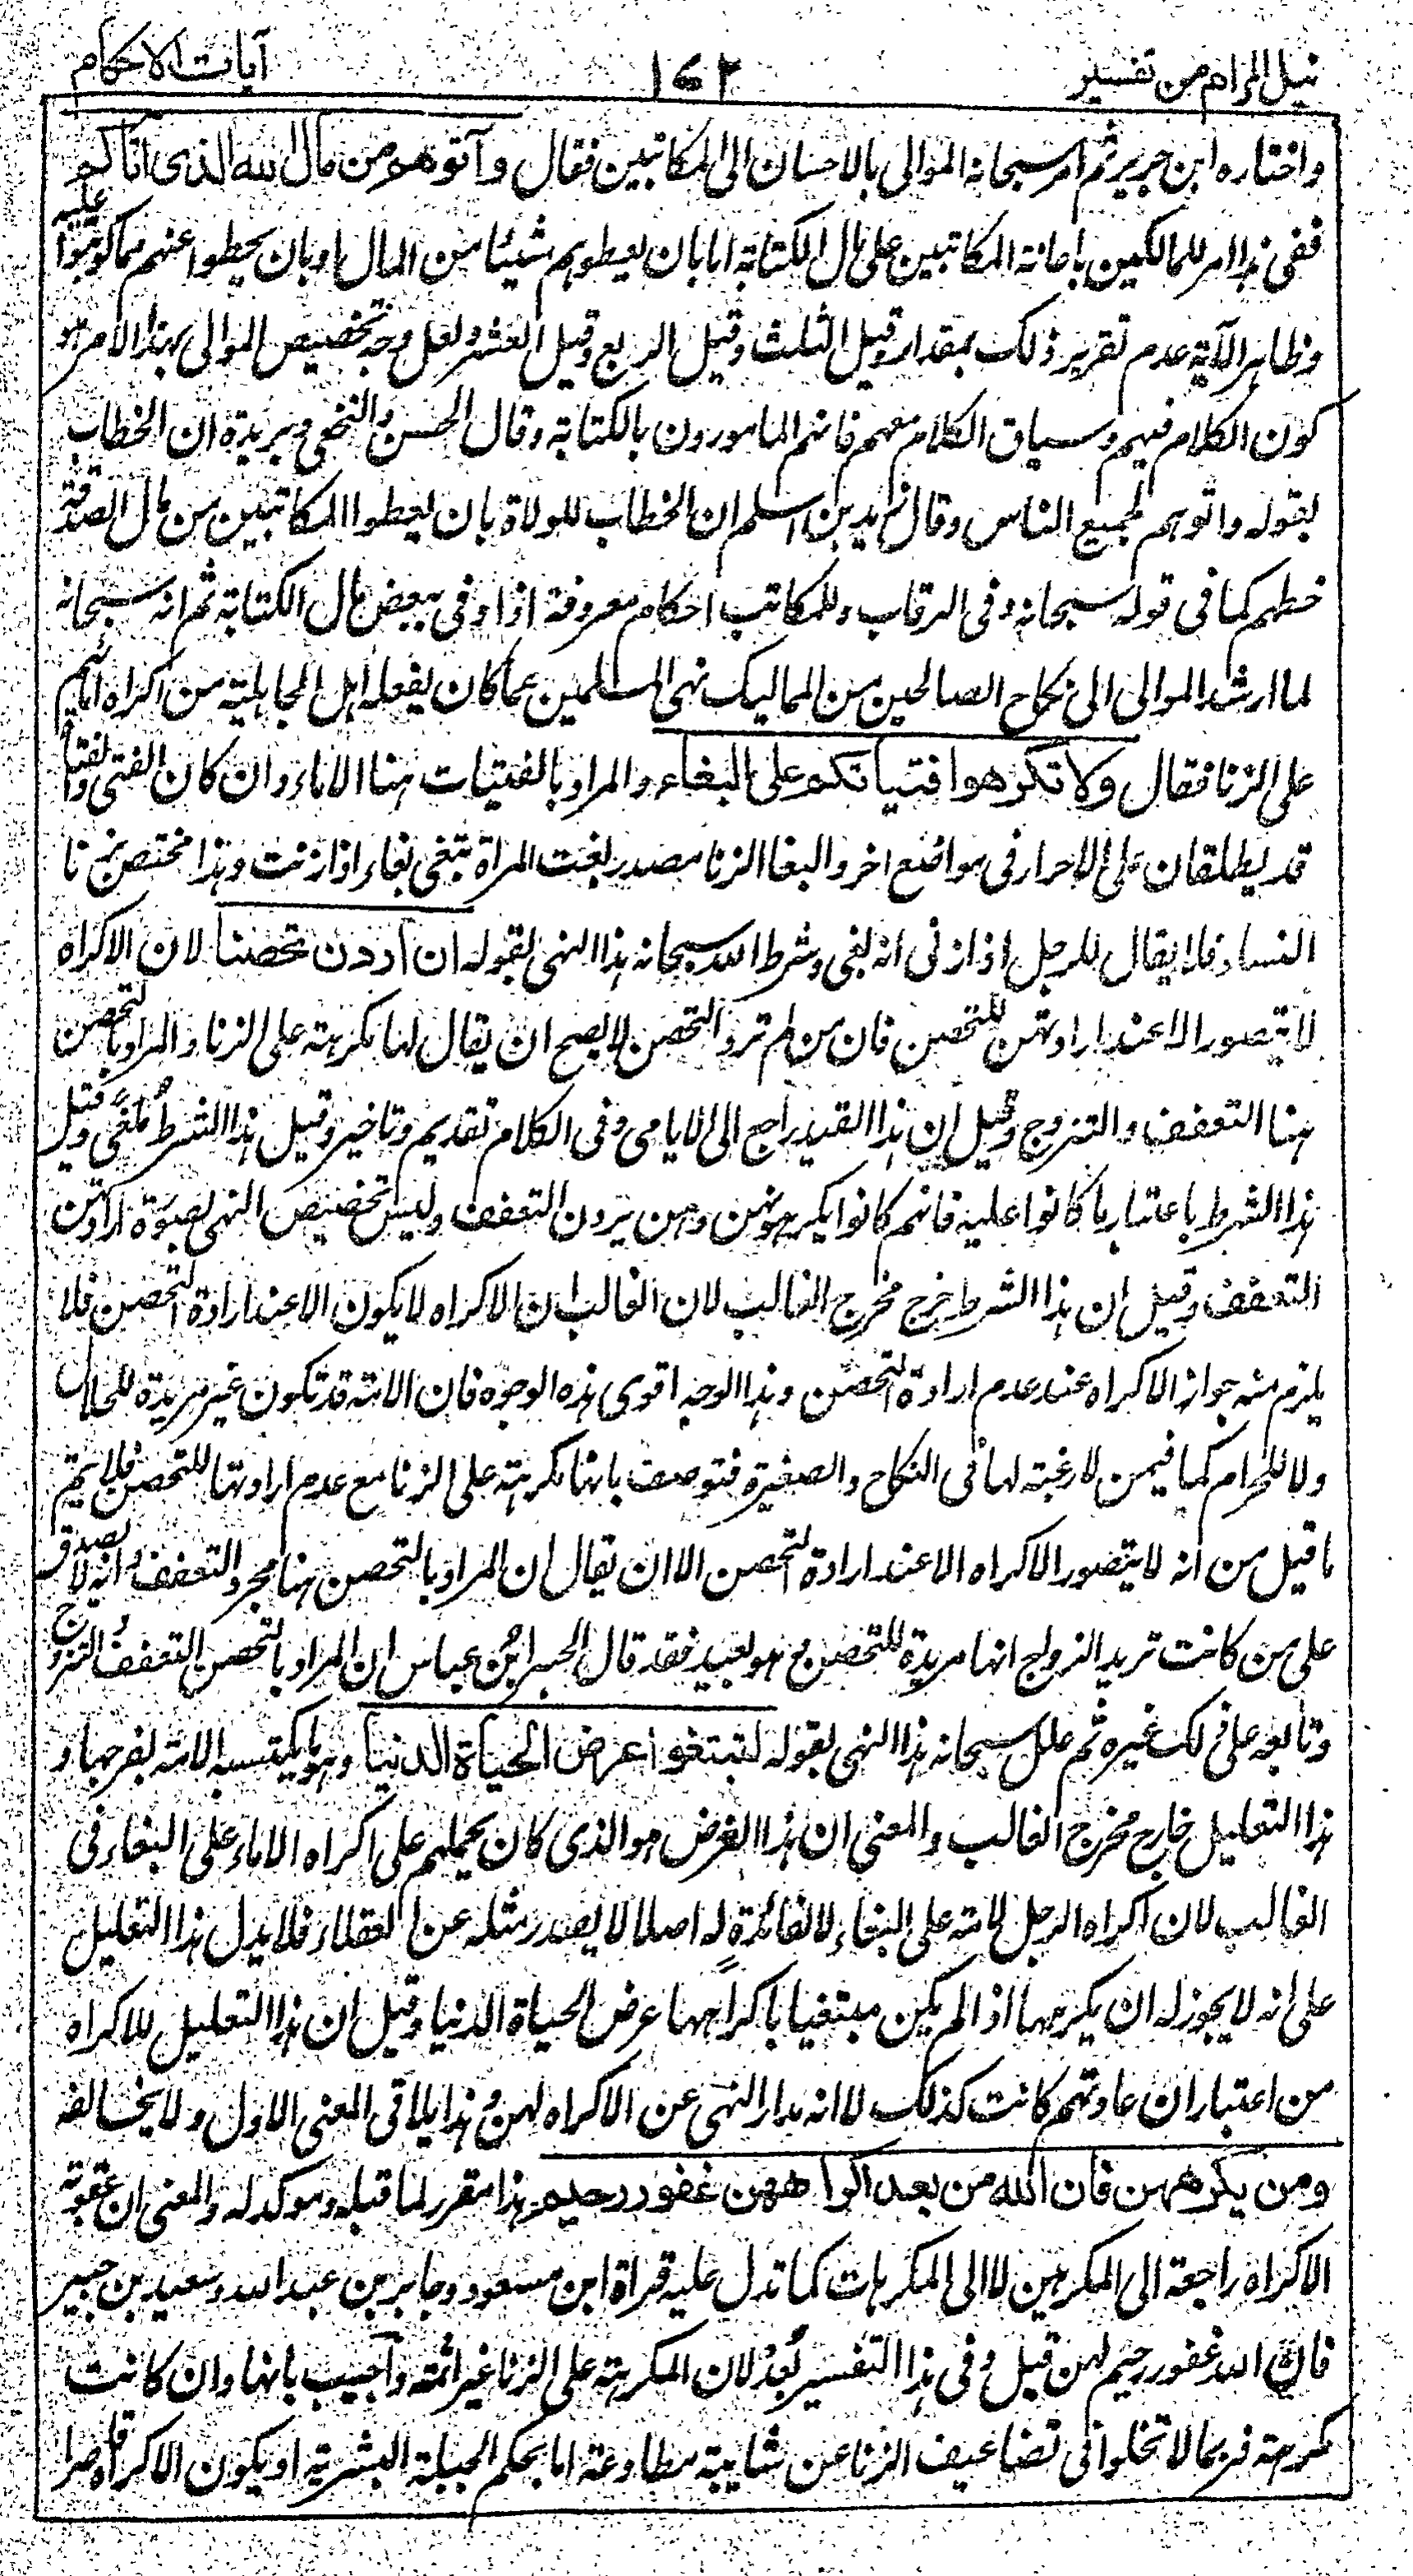 نيل المرام من تفسير ١٤٢ آيات الاحكام
واختاره ابن جرير ثم امر سبحانه الموالى بالاحسان الى المكاتبين فقال وآتوهم من مال الله الذى اتاكم
ففى هذا امر للمالكين باعانة المكاتبين على مال الكتابة اما بان يعطوهم شيئا من المال او بان يحطوا عنهم مما كوتبوا عليه
وظاهر الآية عدم تقرير ذلك بمقدار وقيل الثلث وقيل الربع وقيل العشر ولعل وجه تخصيص الموالى بهذا الامر هو
كون الكلام فيهم وسياق الكلام معهم فانهم المامورون بالكتابة وقال الحسن والنخعى وبريدة ان الخطاب
بقوله واتوهم لجميع الناس وقال زيد بن اسلم ان الخطاب للولاة بان يعطوا المكاتبين من مال الصدقة
حظهم كما فى قوله سبحانه وفى الرقاب وللمكاتب احكام معروفة اذا وفى ببعض مال الكتابة ثم انه سبحانه
لما ارشد الموالى الى نكاح الصالحين من المماليك نهى المسلمين عما كان يفعله اهل الجاهلية من اكراه امائهم
على الزنا فقال ولا تكرهوا فتياتكم على البغاء والمراد بالفتيات هنا الاماء وان كان الفتى والفتاة
قد يطلقان على الاحرار فى مواضع اخر والبغا الزنا مصدر بغت المراة تبغى بغاء اذا زنت وهذا مختص بزنا
النساء فلا يقال للرجل اذا زنى انه بغى وشرط الله سبحانه هذا النهى بقوله ان اردن تحصنا لان الاكراه
لا يتصور الا عند ارادتهن للتحصن فان من لم ترد التحصن لا يصح ان يقال لها مكرهة على الزنا والمراد بالتحصن
هنا التعفف والتزوج وقيل ان هذا القيد راجع الى الايامى وفى الكلام تقديم وتاخير وقيل هذا الشرط مُلغًى وقيل
هذا الشرط باعتبار ما كانوا عليه فانهم كانوا يكرهونهن وهن يردن التعفف وليس تخصيص النهى بصورة ارادتهن
التعفف وقيل ان هذا الشرط خرج مخرج الغالب لان الغالب ان الاكراه لا يكون الا عند ارادة التحصن فلا
يلزم منه جواز الاكراه عند عدم ارادة التحصن وهذا الوجه اقوى هذه الوجوه فان الامة قد تكون غير مريدة للحلال
ولا للحرام كما فيمن لا رغبة لها فى النكاح والصغيرة فتوصف بانها مكرهة على الزنا مع عدم ارادتها للتحصن فلا يتم
ما قيل من انه لا يتصور الاكراه الا عند ارادة التحصن الا ان يقال ان المراد بالتحصن هنا مجرد التعفف وانه لا يصدق
على من كانت تريد الزواج انها مريدة للتحصن وهو بعيد فقد قال الحبر ابن عباس ان المراد بالتحصن التعفف والتزوج
وتابعه على ذلك غيره ثم علل سبحانه هذا النهى بقوله لتبتغوا عرض الحياة الدنيا وهو ما يكتسبه الامة بفرجها و
هذا التعليل خارج مخرج الغالب والمعنى ان هذا الغرض هو الذى كان يحملهم على اكراه الاماء على البغاء فى
الغالب لان اكراه الرجل لامته على البغاء لا لفائدة له اصلا لا يصدر مثله عن العقلاء فلا يدل هذا التعليل
على انه لا يجوز له ان يكرهها اذا لم يكن مبتغيا باكراهها عرض الحياة الدنيا وقيل ان هذا التعليل للاكراه
من اعتبار ان عادتهم كانت كذلك لا انه مدار النهى عن الاكراه لهن وهذا يلاقى المعنى الاول ولا يخالفه
ومن يكرههن فان الله من بعد اكراههن غفور رحيم هذا مقرر لما قبله وموكد له والمعنى ان عقوبة
الاكراه راجعة الى المكرهين لا الى المكرهات كما تدل عليه قراة ابن مسعود وجابر بن عبد الله وسعيد بن جبير
فان الله غفور رحيم لهن قيل وفى هذا التفسير بُعدٌ لان المكرهة على الزنا غير اثمة وأجيب بانها وان كانت
مكرهة فربما لا تخلوا فى تضاعيف الزنا عن شايبة مطاوعة اما بحكم الجبلة البشرية او يكون الاكراه قاصرا